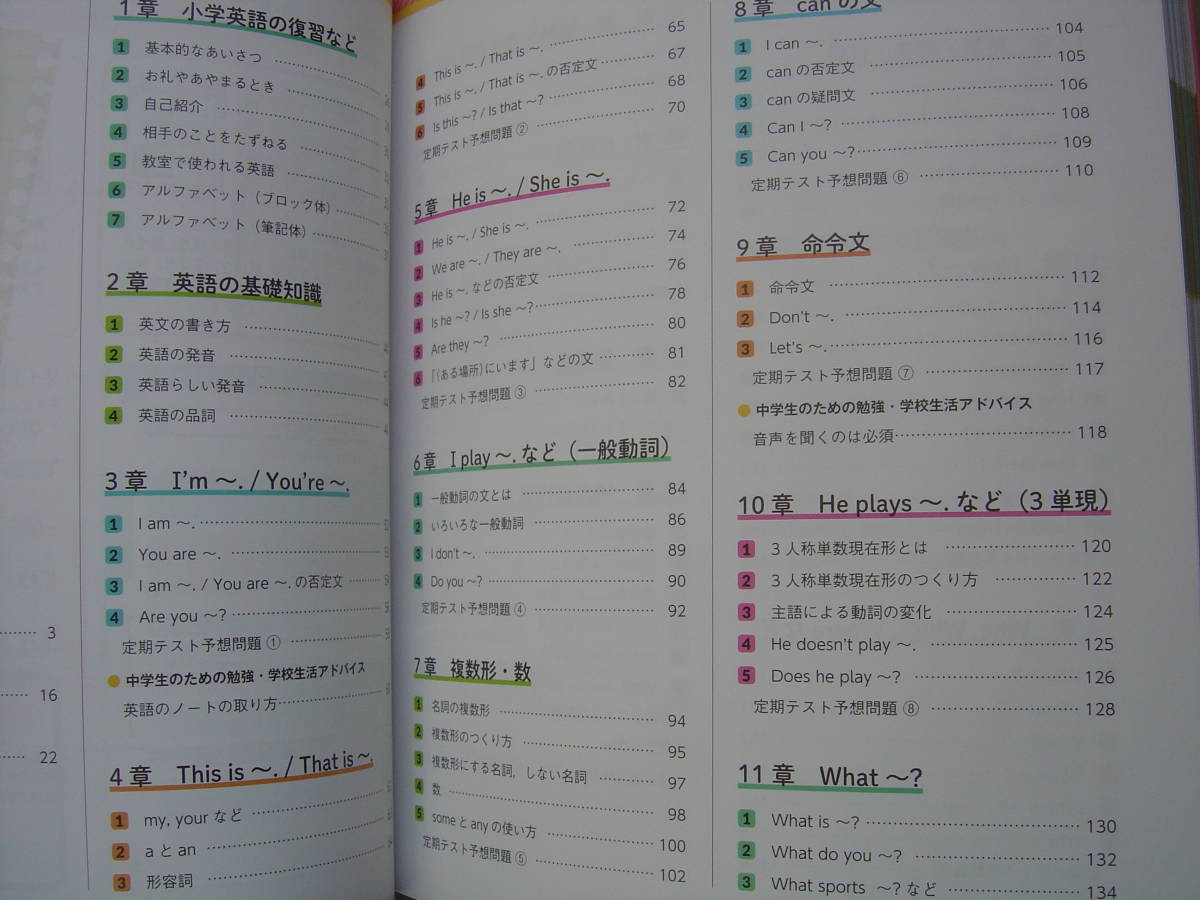 3
16
22
1章 小学英語の復習など
1 基本的なあいさつ
2 お礼やあやまるとき
3 自己紹介
4 相手のことをたずねる
5 教室で使われる英語
6 アルファベット（ブロック体）
7 アルファベット（筆記体）
2章 英語の基礎知識
1 英文の書き方
2 英語の発音
3 英語らしい発音
4 英語の品詞
3章 I'm ～. / You're ～.
1 I am ～.
2 You are ～.
3 I am ～. / You are ～. の否定文
4 Are you ～?
定期テスト予想問題 ①
● 中学生のための勉強・学校生活アドバイス
英語のノートの取り方
4章 This is ～. / That is ～.
1 my, your など
2 a と an
3 形容詞
4 This is ～. / That is ～. 65
5 This is ～. / That is ～. の否定文 67
6 Is this ～? / Is that ～? 68
定期テスト予想問題 ② 70
5章 He is ～. / She is ～.
1 He is ～. / She is ～. 72
2 We are ～. / They are ～. 74
3 He is ～. などの否定文 76
4 Is he ～? / Is she ～? 78
5 Are they ～? 80
6 「(ある場所)にいます」などの文 81
定期テスト予想問題 ③ 82
6章 I play ～. など（一般動詞）
1 一般動詞の文とは 84
2 いろいろな一般動詞 86
3 I don't ～. 89
4 Do you ～? 90
定期テスト予想問題 ④ 92
7章 複数形・数
1 名詞の複数形 94
2 複数形のつくり方 95
3 複数形にする名詞，しない名詞 97
4 数 98
5 some と any の使い方 100
定期テスト予想問題 ⑤ 102
8章 can の文
1 I can ～. 104
2 can の否定文 105
3 can の疑問文 106
4 Can I ～? 108
5 Can you ～? 109
定期テスト予想問題 ⑥ 110
9章 命令文
1 命令文 112
2 Don't ～. 114
3 Let's ～. 116
定期テスト予想問題 ⑦ 117
● 中学生のための勉強・学校生活アドバイス
音声を聞くのは必須 118
10章 He plays ～. など（3単現）
1 3人称単数現在形とは 120
2 3人称単数現在形のつくり方 122
3 主語による動詞の変化 124
4 He doesn't play ～. 125
5 Does he play ～? 126
定期テスト予想問題 ⑧ 128
11章 What ～?
1 What is ～? 130
2 What do you ～? 132
3 What sports ～? など 134